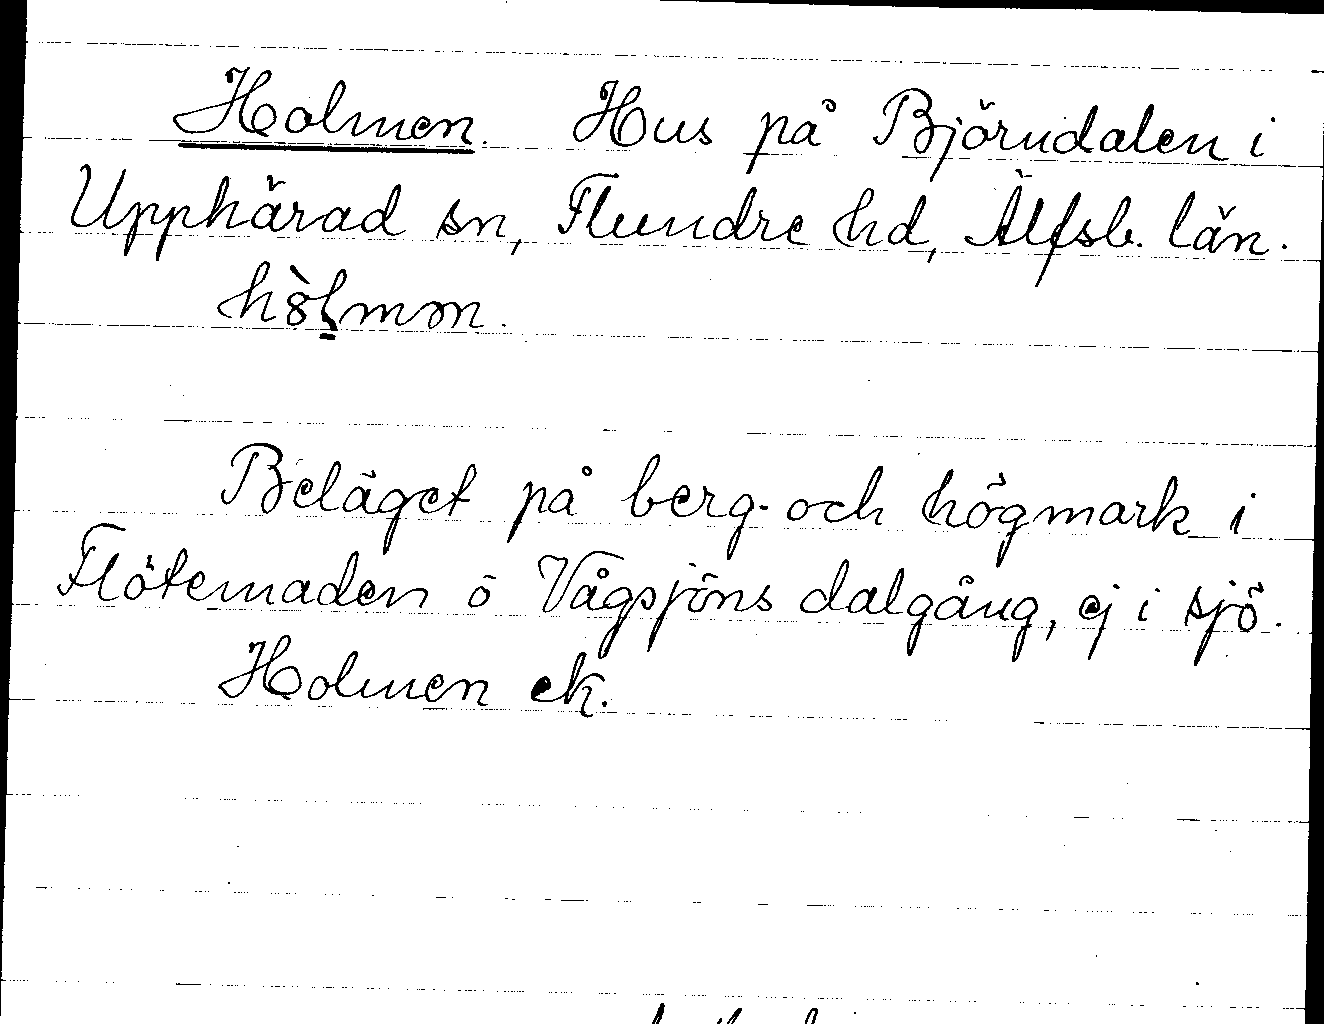 Holmen. Hus på Björndalen i
Upphärad sn, Flundre hd, Älfsb. län.
Beläget på berg- och högmark i
Flötemaden ö Vågsjöns dalgång, ej i sjö.
Holmen ek.